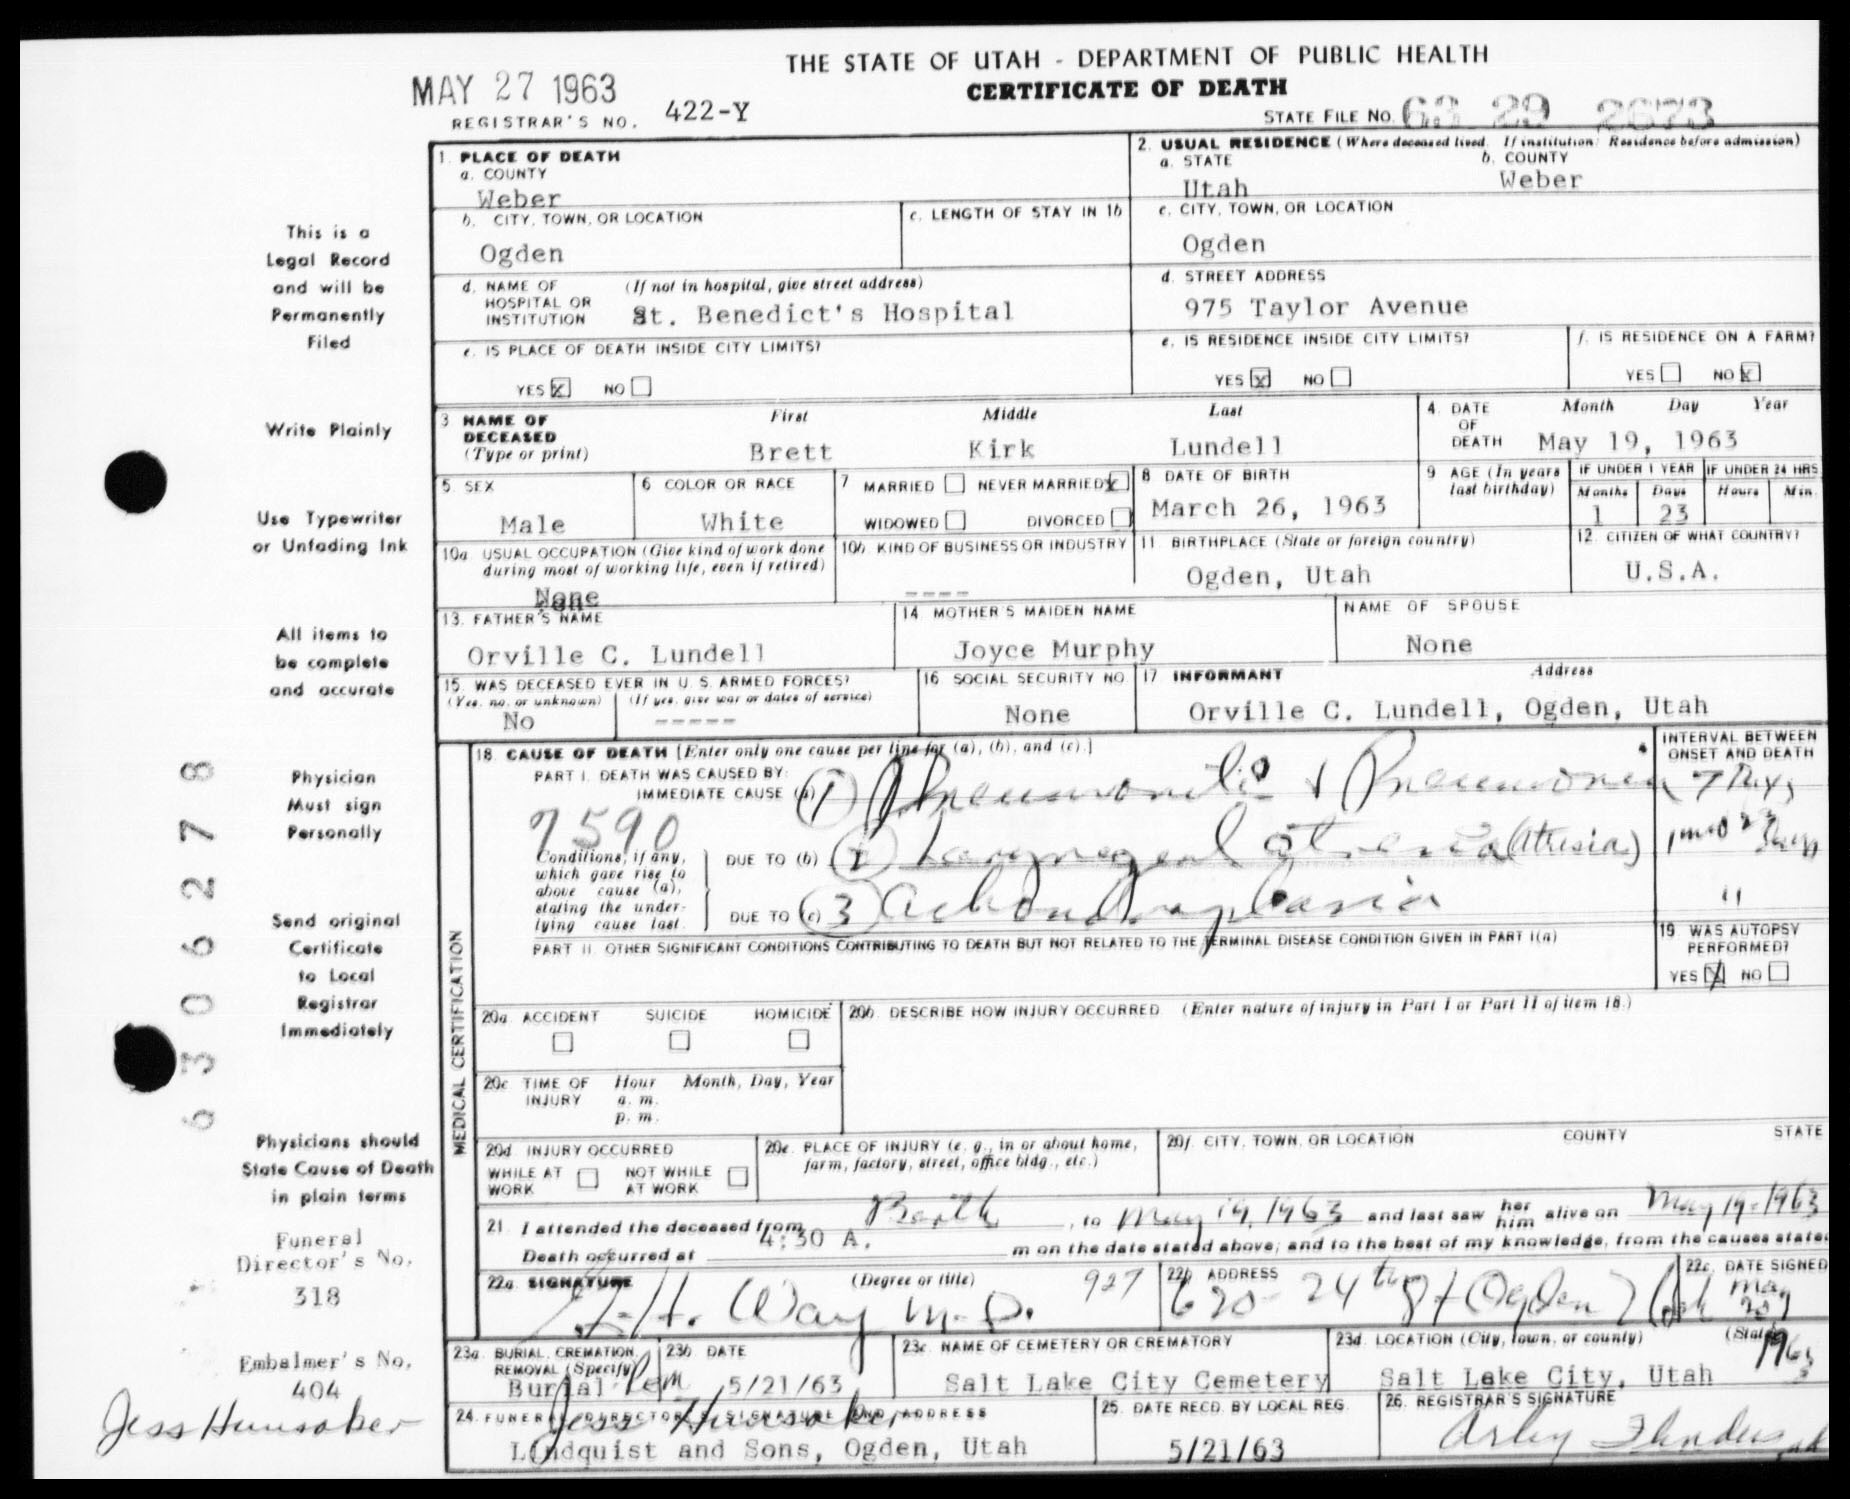 THE STATE OF UTAH - DEPARTMENT OF PUBLIC HEALTH
MAY 27 1963
CERTIFICATE OF DEATH
REGISTRAR'S NO. 422-Y
STATE FILE NO. 63 29 2673
1. PLACE OF DEATH
a. COUNTY
Weber
2. USUAL RESIDENCE (Where deceased lived. If institution: Residence before admission)
a. STATE b. COUNTY
Utah Weber
b. CITY, TOWN, OR LOCATION
Ogden
c. LENGTH OF STAY IN 1b
c. CITY, TOWN, OR LOCATION
Ogden
d. NAME OF (If not in hospital, give street address)
HOSPITAL OR
INSTITUTION St. Benedict's Hospital
d. STREET ADDRESS
975 Taylor Avenue
e. IS PLACE OF DEATH INSIDE CITY LIMITS?
YES X NO
e. IS RESIDENCE INSIDE CITY LIMITS?
YES X NO
f. IS RESIDENCE ON A FARM?
YES NO X
3 NAME OF First Middle Last
DECEASED
(Type or print) Brett Kirk Lundell
4. DATE Month Day Year
OF
DEATH May 19, 1963
5. SEX
Male
6 COLOR OR RACE
White
7 MARRIED NEVER MARRIED X
WIDOWED DIVORCED
8 DATE OF BIRTH
March 26, 1963
9 AGE (In years
last birthday)
IF UNDER 1 YEAR IF UNDER 24 HRS
Months Days Hours Min.
1 23
10a. USUAL OCCUPATION (Give kind of work done
during most of working life, even if retired)
None
10b. KIND OF BUSINESS OR INDUSTRY
----
11 BIRTHPLACE (State or foreign country)
Ogden, Utah
12. CITIZEN OF WHAT COUNTRY?
U.S.A.
13. FATHER'S NAME
Orville C. Lundell
14 MOTHER'S MAIDEN NAME
Joyce Murphy
NAME OF SPOUSE
None
15. WAS DECEASED EVER IN U. S. ARMED FORCES?
(Yes, no, or unknown) (If yes, give war or dates of service)
No -----
16 SOCIAL SECURITY NO.
None
17 INFORMANT Address
Orville C. Lundell, Ogden, Utah
MEDICAL CERTIFICATION
18. CAUSE OF DEATH [Enter only one cause per line for (a), (b), and (c).]
INTERVAL BETWEEN
ONSET AND DEATH
PART I. DEATH WAS CAUSED BY:
IMMEDIATE CAUSE (a) 1 Pneumonitis & Pneumonia 7 Days
7590
Conditions, if any,
which gave rise to
above cause (a),
stating the under-
lying cause last.
DUE TO (b) 2 Laryngeal atresia (Athesia) 1 mo 23 Days
DUE TO (c) 3 Achondroplasia "
PART II. OTHER SIGNIFICANT CONDITIONS CONTRIBUTING TO DEATH BUT NOT RELATED TO THE TERMINAL DISEASE CONDITION GIVEN IN PART I(a)
19. WAS AUTOPSY
PERFORMED?
YES X NO
20a. ACCIDENT SUICIDE HOMICIDE
20b. DESCRIBE HOW INJURY OCCURRED (Enter nature of injury in Part I or Part II of item 18.)
20c TIME OF Hour Month, Day, Year
INJURY a. m.
p. m.
20d INJURY OCCURRED
WHILE AT NOT WHILE
WORK AT WORK
20e. PLACE OF INJURY (e. g., in or about home,
farm, factory, street, office bldg., etc.)
20f. CITY, TOWN, OR LOCATION COUNTY STATE
21. I attended the deceased from Birth, to May 19, 1963 and last saw her him alive on May 19-1963
Death occurred at 4:30 A. m on the date stated above; and to the best of my knowledge, from the causes stated
22a. SIGNATURE (Degree or title) 927
Way M.D.
22b ADDRESS
620- 24th St Ogden Utah
22c. DATE SIGNED
May 20 1963
23a. BURIAL, CREMATION,
REMOVAL (Specify)
Burial Rem
23b DATE
5/21/63
23c. NAME OF CEMETERY OR CREMATORY
Salt Lake City Cemetery
23d. LOCATION (City, town, or county) (State)
Salt Lake City, Utah
24. FUNERAL DIRECTOR'S SIGNATURE AND ADDRESS
Jess Hunsaker
Lindquist and Sons, Ogden, Utah
25. DATE RECD. BY LOCAL REG.
5/21/63
26. REGISTRAR'S SIGNATURE
This is a
Legal Record
and will be
Permanently
Filed
Write Plainly
Use Typewriter
or Unfading Ink
All items to
be complete
and accurate
Physician
Must sign
Personally
Send original
Certificate
to Local
Registrar
Immediately
Physicians should
State Cause of Death
in plain terms
Funeral
Director's No.
318
Embalmer's No.
404
Jess Hunsaker
6306278